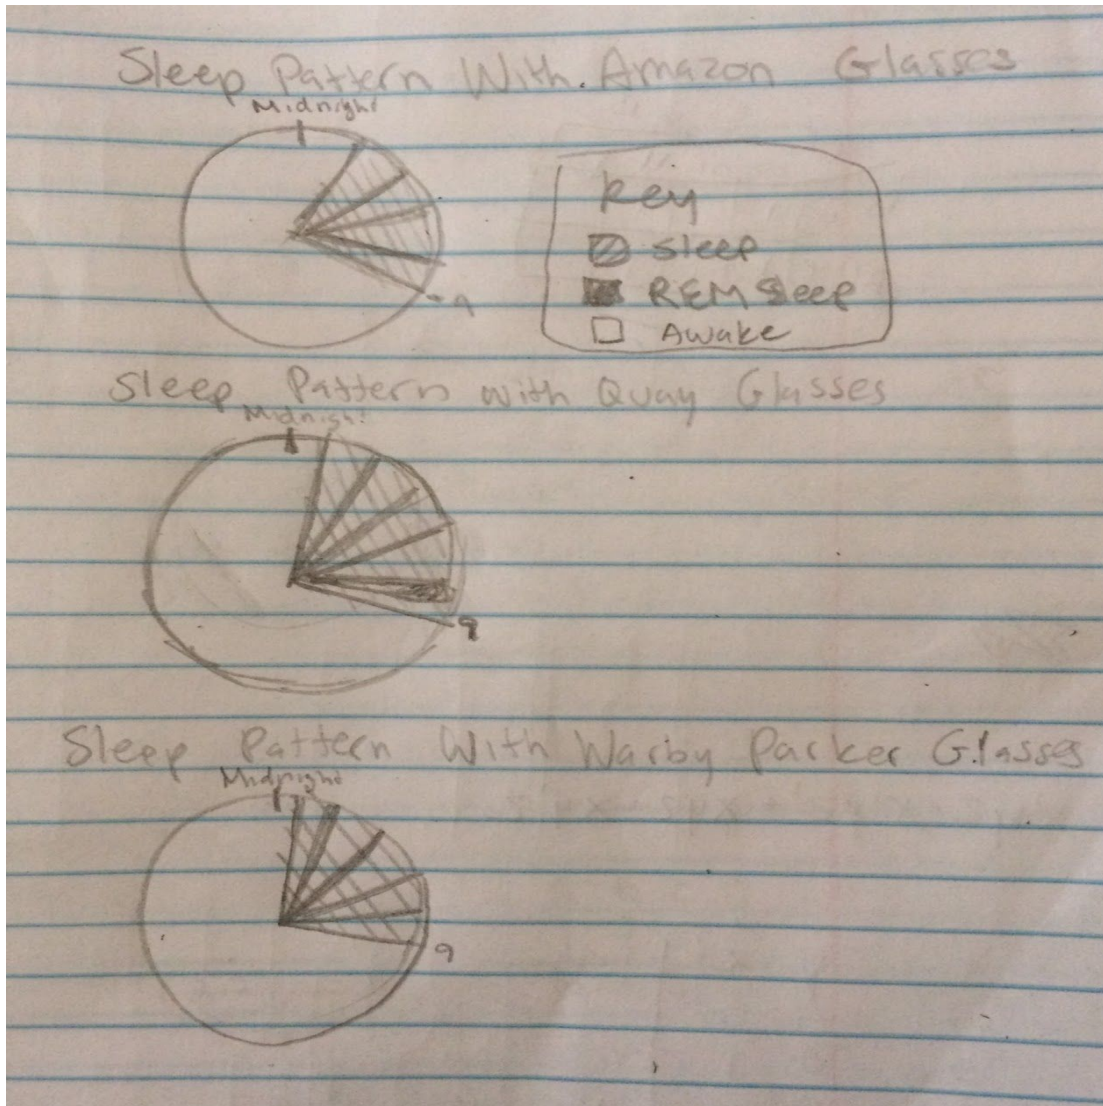 Sleep Pattern With Amazon Glasses
Midnight
Key
Sleep
REM Sleep
Awake
9
Sleep Pattern with Quay Glasses
Midnight
9
Sleep Pattern With Warby Parker Glasses
Midnight
9